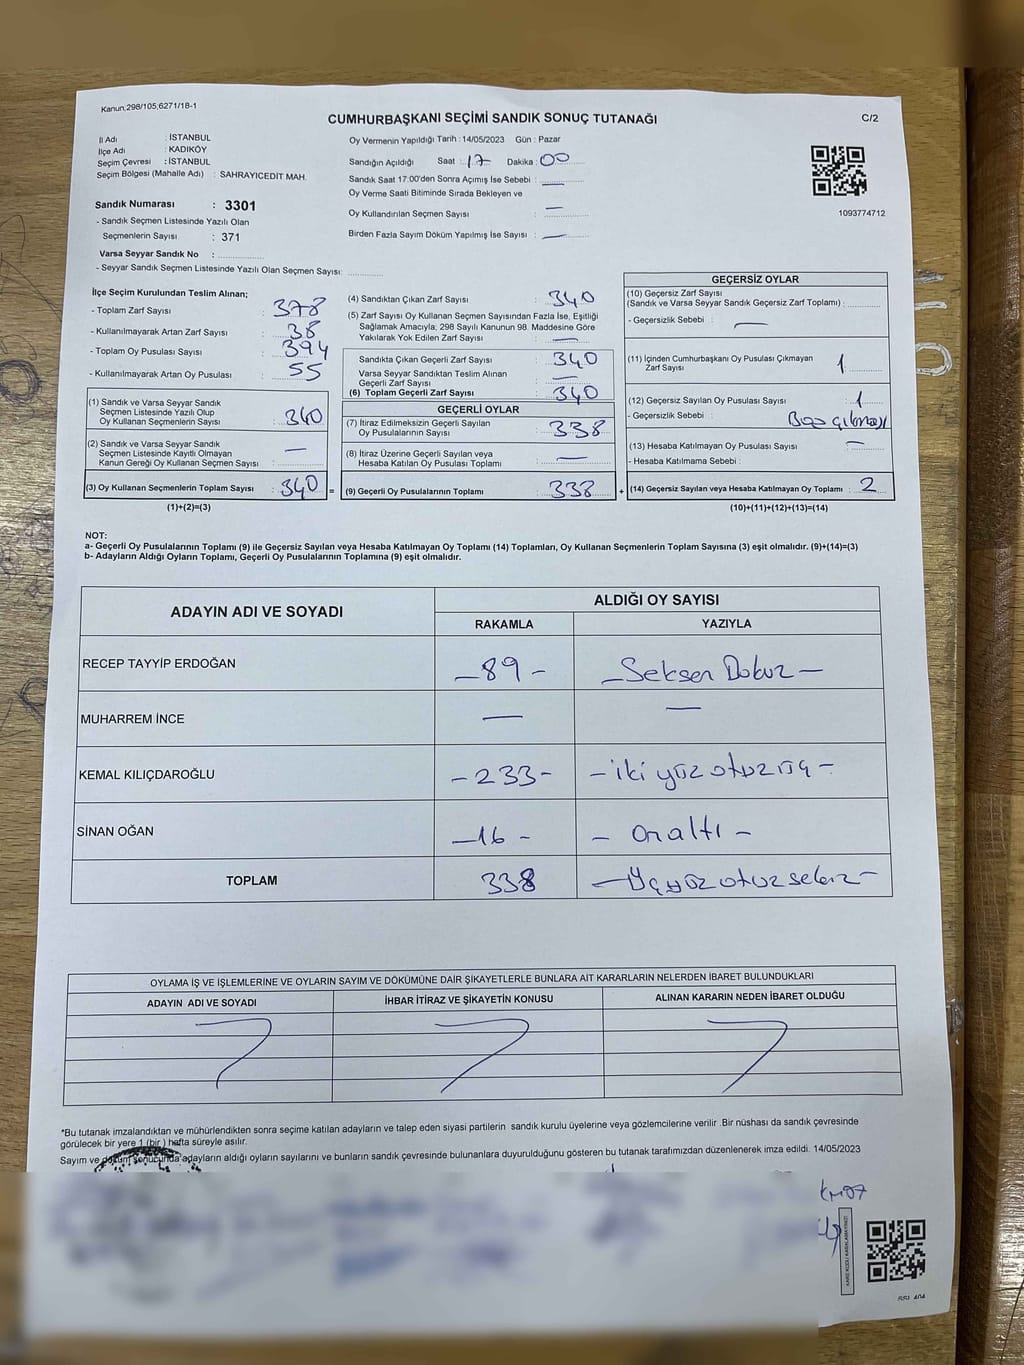 Kanun:298/105;6271/18-1
CUMHURBAŞKANI SEÇİMİ SANDIK SONUÇ TUTANAĞI
C/2
İl Adı : İSTANBUL
İlçe Adı : KADIKÖY
Seçim Çevresi : İSTANBUL
Seçim Bölgesi (Mahalle Adı) : SAHRAYICEDİT MAH.
Sandık Numarası : 3301
- Sandık Seçmen Listesinde Yazılı Olan
Seçmenlerin Sayısı : 371
Varsa Seyyar Sandık No :
- Seyyar Sandık Seçmen Listesinde Yazılı Olan Seçmen Sayısı:
Oy Vermenin Yapıldığı Tarih : 14/05/2023 Gün : Pazar
Sandığın Açıldığı Saat : 17 Dakika : 00
Sandık Saat 17:00'den Sonra Açımış İse Sebebi : —
Oy Verme Saati Bitiminde Sırada Bekleyen ve
Oy Kullandırılan Seçmen Sayısı : —
Birden Fazla Sayım Döküm Yapılmış İse Sayısı : —
1093774712
İlçe Seçim Kurulundan Teslim Alınan;
- Toplam Zarf Sayısı : 378
- Kullanılmayarak Artan Zarf Sayısı : 38
- Toplam Oy Pusulası Sayısı : 394
- Kullanılmayarak Artan Oy Pusulası : 55
(1) Sandık ve Varsa Seyyar Sandık
Seçmen Listesinde Yazılı Olup
Oy Kullanan Seçmenlerin Sayısı : 340
(2) Sandık ve Varsa Seyyar Sandık
Seçmen Listesinde Kayıtlı Olmayan
Kanun Gereği Oy Kullanan Seçmen Sayısı : —
(3) Oy Kullanan Seçmenlerin Toplam Sayısı : 340 =
(1)+(2)=(3)
(4) Sandıktan Çıkan Zarf Sayısı : 340
(5) Zarf Sayısı Oy Kullanan Seçmen Sayısından Fazla İse, Eşitliği
Sağlamak Amacıyla; 298 Sayılı Kanunun 98. Maddesine Göre
Yakılarak Yok Edilen Zarf Sayısı : —
Sandıkta Çıkan Geçerli Zarf Sayısı : 340
Varsa Seyyar Sandıktan Teslim Alınan
Geçerli Zarf Sayısı : —
(6) Toplam Geçerli Zarf Sayısı : 340
GEÇERLİ OYLAR
(7) İtiraz Edilmeksizin Geçerli Sayılan
Oy Pusulalarının Sayısı : 338
(8) İtiraz Üzerine Geçerli Sayılan veya
Hesaba Katılan Oy Pusulası Toplamı : —
(9) Geçerli Oy Pusulalarının Toplamı : 338 +
GEÇERSİZ OYLAR
(10) Geçersiz Zarf Sayısı
(Sandık ve Varsa Seyyar Sandık Geçersiz Zarf Toplamı) :
- Geçersizlik Sebebi : —
(11) İçinden Cumhurbaşkanı Oy Pusulası Çıkmayan
Zarf Sayısı : 1
(12) Geçersiz Sayılan Oy Pusulası Sayısı : 1
- Geçersizlik Sebebi :
(13) Hesaba Katılmayan Oy Pusulası Sayısı : —
- Hesaba Katılmama Sebebi :
(14) Geçersiz Sayılan veya Hesaba Katılmayan Oy Toplamı : 2
(10)+(11)+(12)+(13)=(14)
NOT:
a- Geçerli Oy Pusulalarının Toplamı (9) ile Geçersiz Sayılan veya Hesaba Katılmayan Oy Toplamı (14) Toplamları, Oy Kullanan Seçmenlerin Toplam Sayısına (3) eşit olmalıdır. (9)+(14)=(3)
b- Adayların Aldığı Oyların Toplamı, Geçerli Oy Pusulalarının Toplamına (9) eşit olmalıdır.
ADAYIN ADI VE SOYADI
ALDIĞI OY SAYISI
RAKAMLA YAZIYLA
RECEP TAYYİP ERDOĞAN - 89 - - Seksen Dokuz -
MUHARREM İNCE — —
KEMAL KILIÇDAROĞLU - 233 - - iki yüz otuz üç -
SİNAN OĞAN - 16 - - on altı -
TOPLAM 338 - Üç yüz otuz sekiz -
OYLAMA İŞ VE İŞLEMLERİNE VE OYLARIN SAYIM VE DÖKÜMÜNE DAİR ŞİKAYETLERLE BUNLARA AİT KARARLARIN NELERDEN İBARET BULUNDUKLARI
ADAYIN ADI VE SOYADI İHBAR İTİRAZ VE ŞİKAYETİN KONUSU ALINAN KARARIN NEDEN İBARET OLDUĞU
*Bu tutanak imzalandıktan ve mühürlendikten sonra seçime katılan adayların ve talep eden siyasi partilerin sandık kurulu üyelerine veya gözlemcilerine verilir .Bir nüshası da sandık çevresinde
görülecek bir yere 1 (bir ) hafta süreyle asılır.
Sayım ve döküm sonucunda adayların aldığı oyların sayılarını ve bunların sandık çevresinde bulunanlara duyurulduğunu gösteren bu tutanak tarafımızdan düzenlenerek imza edildi. 14/05/2023